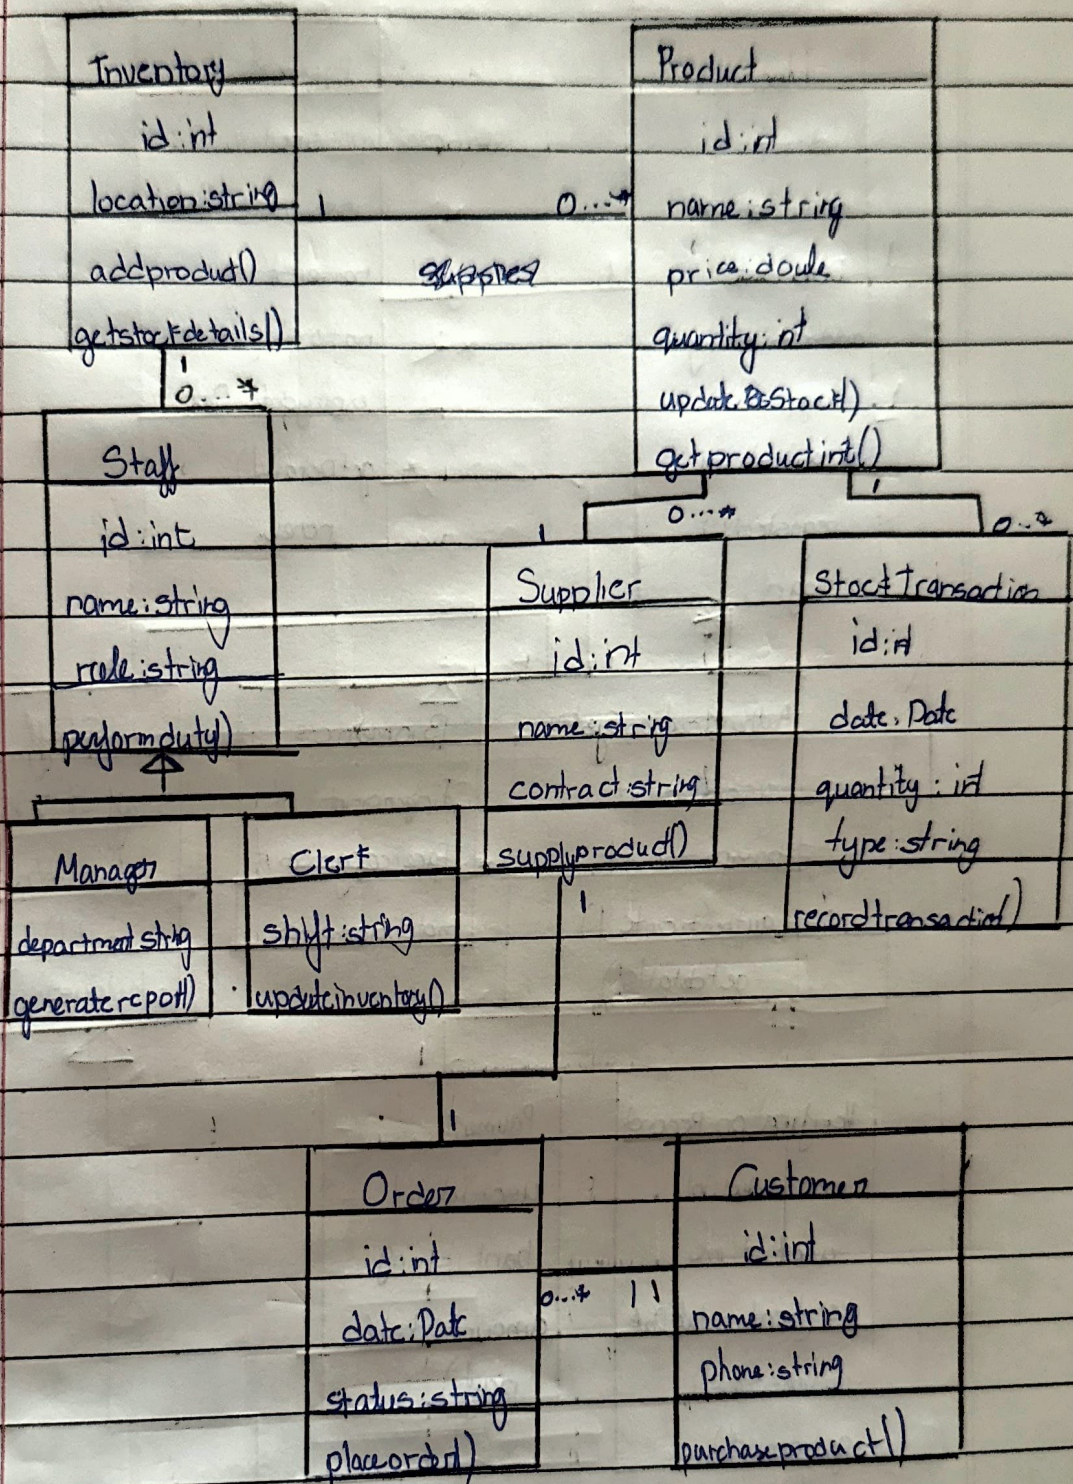 Inventory
id:int
location:string
addproduct()
getstockdetails()
1
0...*
Product
id:int
name:string
price:doule
quantity:int
updateStock()
getproductint()
1
0...*
Staff
id:int
name:string
role:string
performduty()
0...*
1
Supplier
id:int
name:string
contract:string
supplyproduct()
1
0..*
StockTransaction
id:int
date:Date
quantity:int
type:string
recordtransaction()
Manager
department:string
generatereport()
Clerk
shift:string
updateinventory()
1
1
Order
id:int
date:Date
status:string
placeorder()
0...*
1 1
Customer
id:int
name:string
phone:string
purchaseproduct()